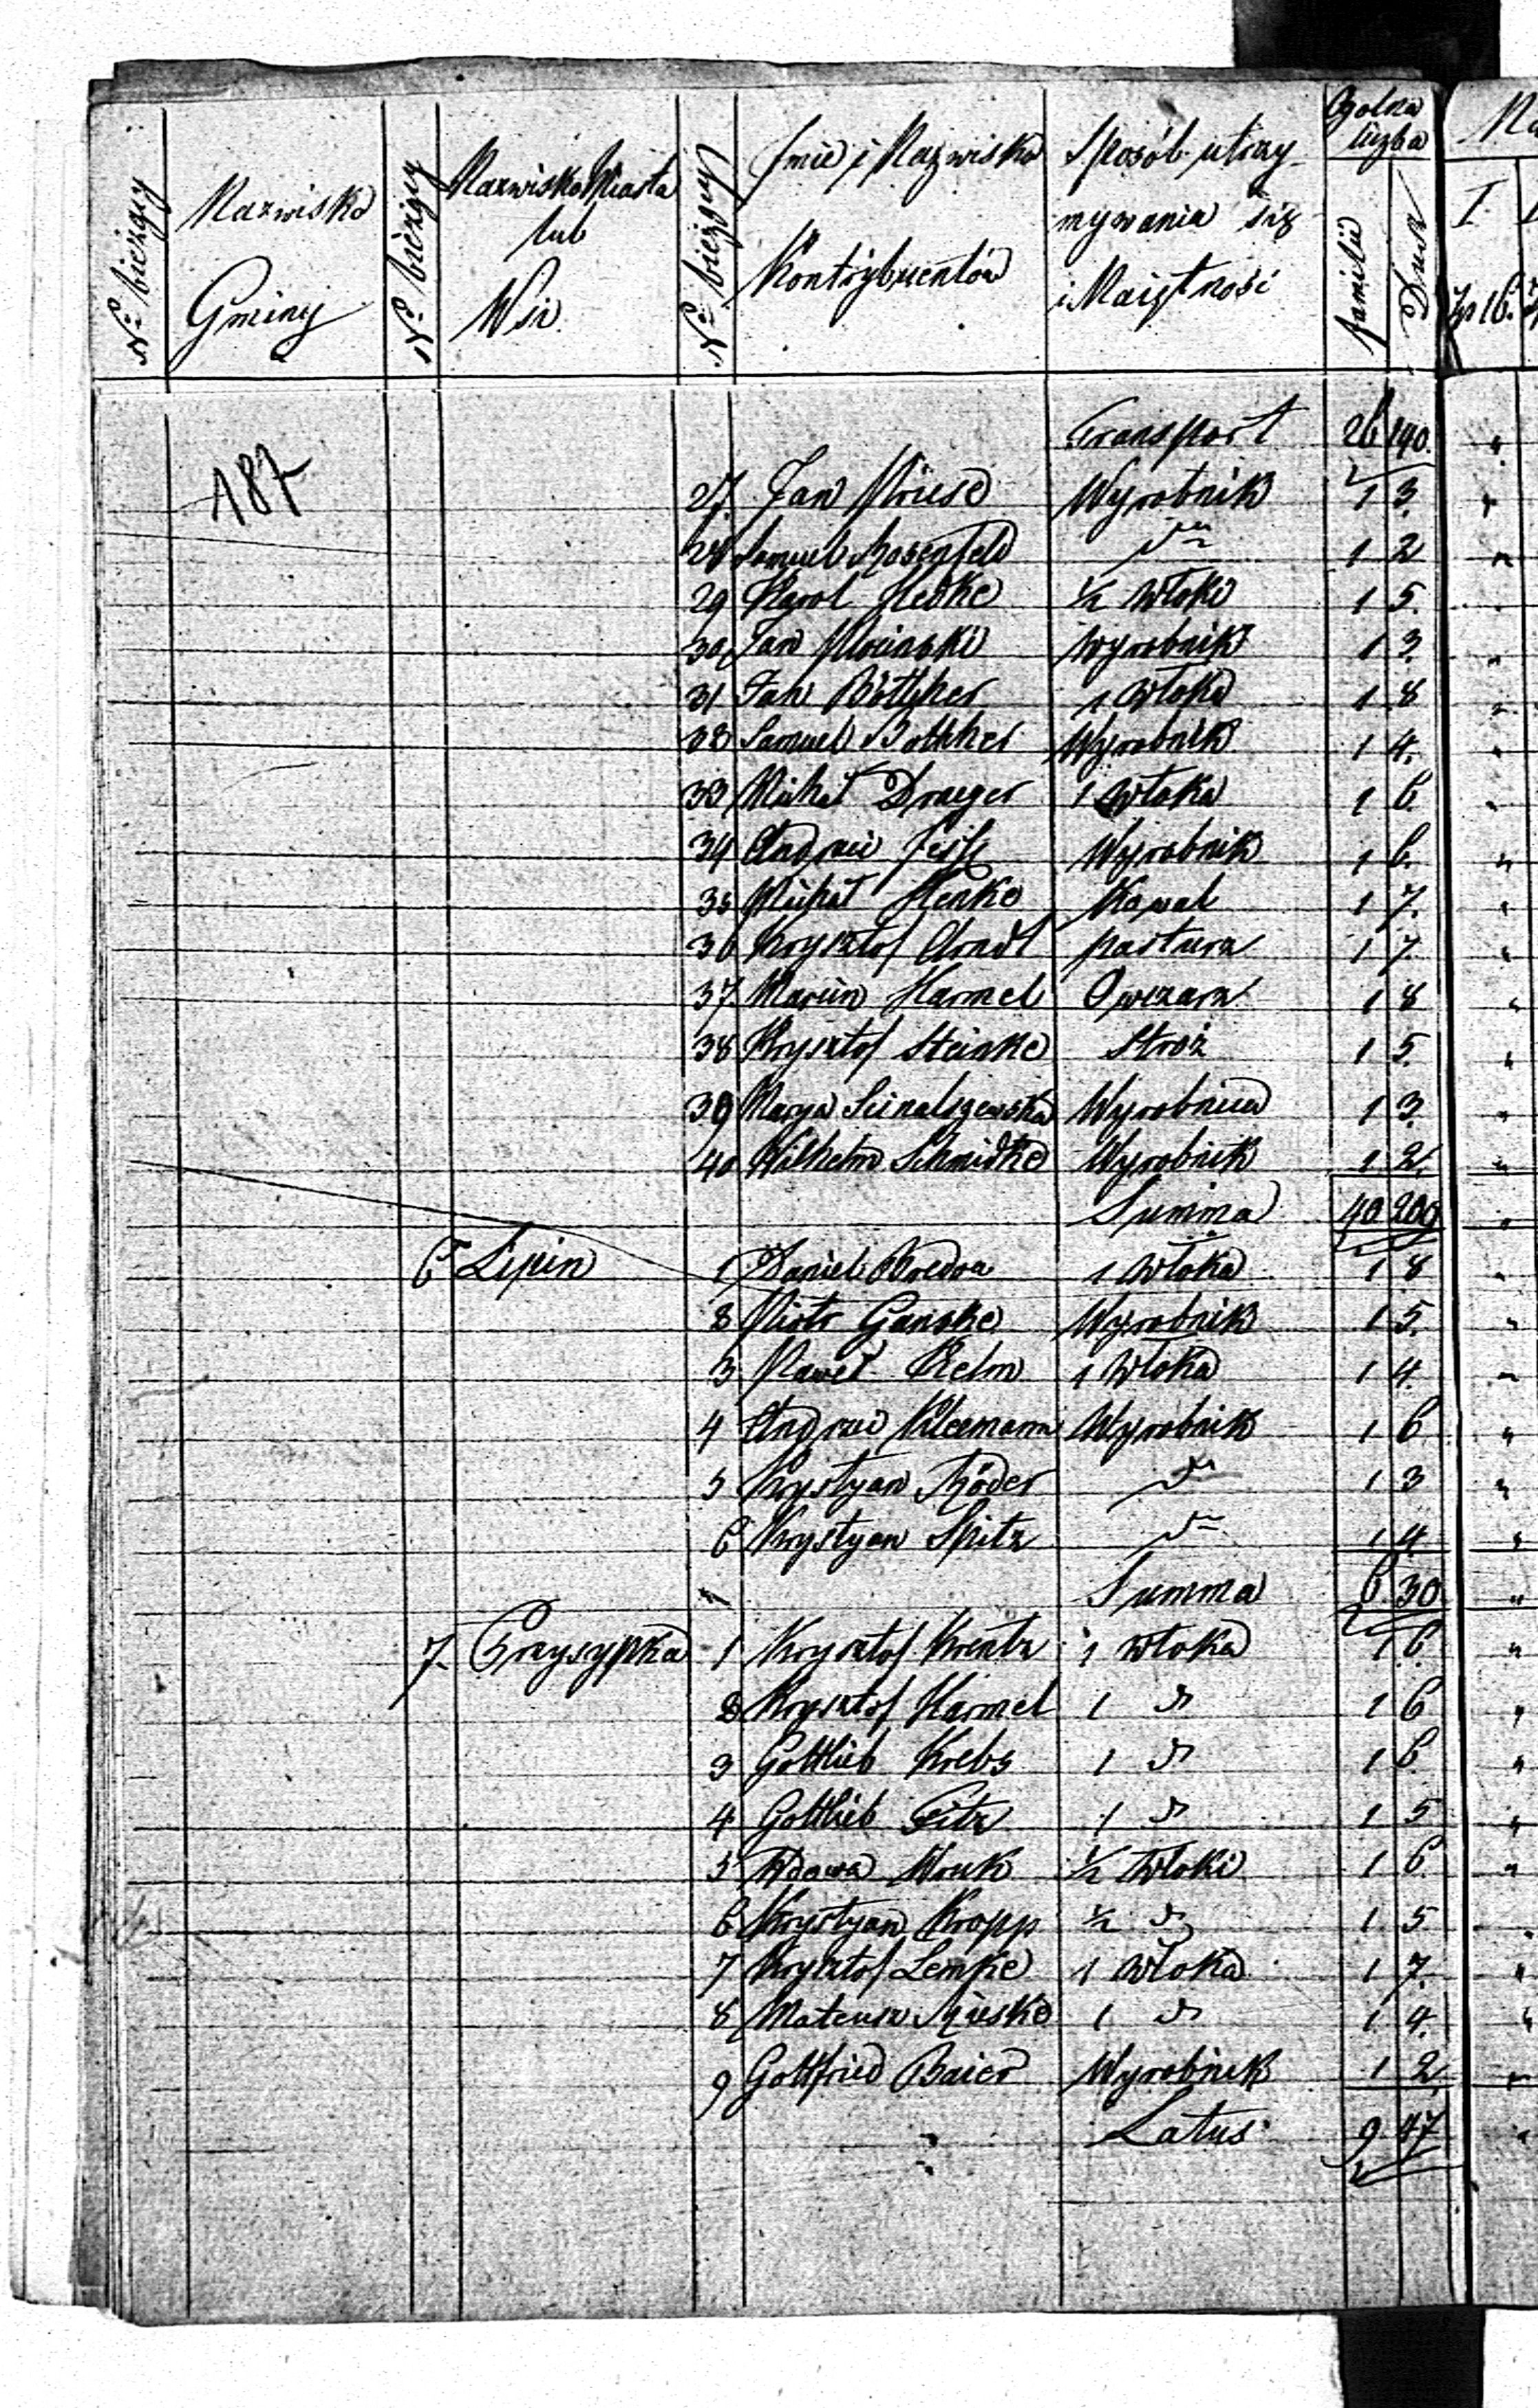 Nº bieżący
Nazwisko Gminy
Nº bieżący
Nazwisko Miasta lub Wsi
Nº bieżący
Imie i Nazwisko Kontrybuentów
Sposób utrzymywania się i Maiętność
Ogólna liczba
familii
Dusz
I
187
Transport 26 140.
27. Jan Kriese Wyrobnik 1 3.
28 Samuel Rosenfeld dto 1 2
29 Karol Hedke ½ Włóki 1 5.
30. Jan Wyrobnik 1 3.
31 Jan Böttcher 1 Włoka 1 8
32 Samuel Bottcher Wyrobnik 1 4.
33 Michał Draeger 1 Włoka 1 6.
34 Andrzei Wyrobnik 1 6.
35 Michał Henke Kowal 1 7.
36 Krysztof Arndt pasturz 1 7
37. Marcin Harmel Owczarz 1 8
38 Krysztof Steinke Stroż 1 5.
39 Marya Wyrobnica 1 3.
40 Wilhelm Schmidke Wyrobnik 1 2.
Summa 40 209
6 Lipin 1 Daniel 1 Włoka 1 8
2 Piotr Ganske Wyrobnik 1 5.
3 Paweł Helm 1 Włoka 1 4.
4 Andrzei Kleemann Wyrobnik 1 6
5 Krystyan Röder dto 1 3
6 Krystyan Spitz dto 1 4
Summa 6 30
7. Przysypka 1 Krysztof Krentz 1 włoka 1 6.
2 Krysztof Harmel 1 d 1 6
3 Gottlieb Krebs 1 d 1 6.
4 Gottlieb Seitz 1 d 1 5
5 Wdowa ½ Włoki 1 6.
6 Krystyan Kropp ½ d 1 5
7 Krysztof Lemke 1 Włoka 1 7.
8 Mateusz 1 d 1 4.
9 Gottfried Baier Wyrobnik 1 2
Latus 9 47